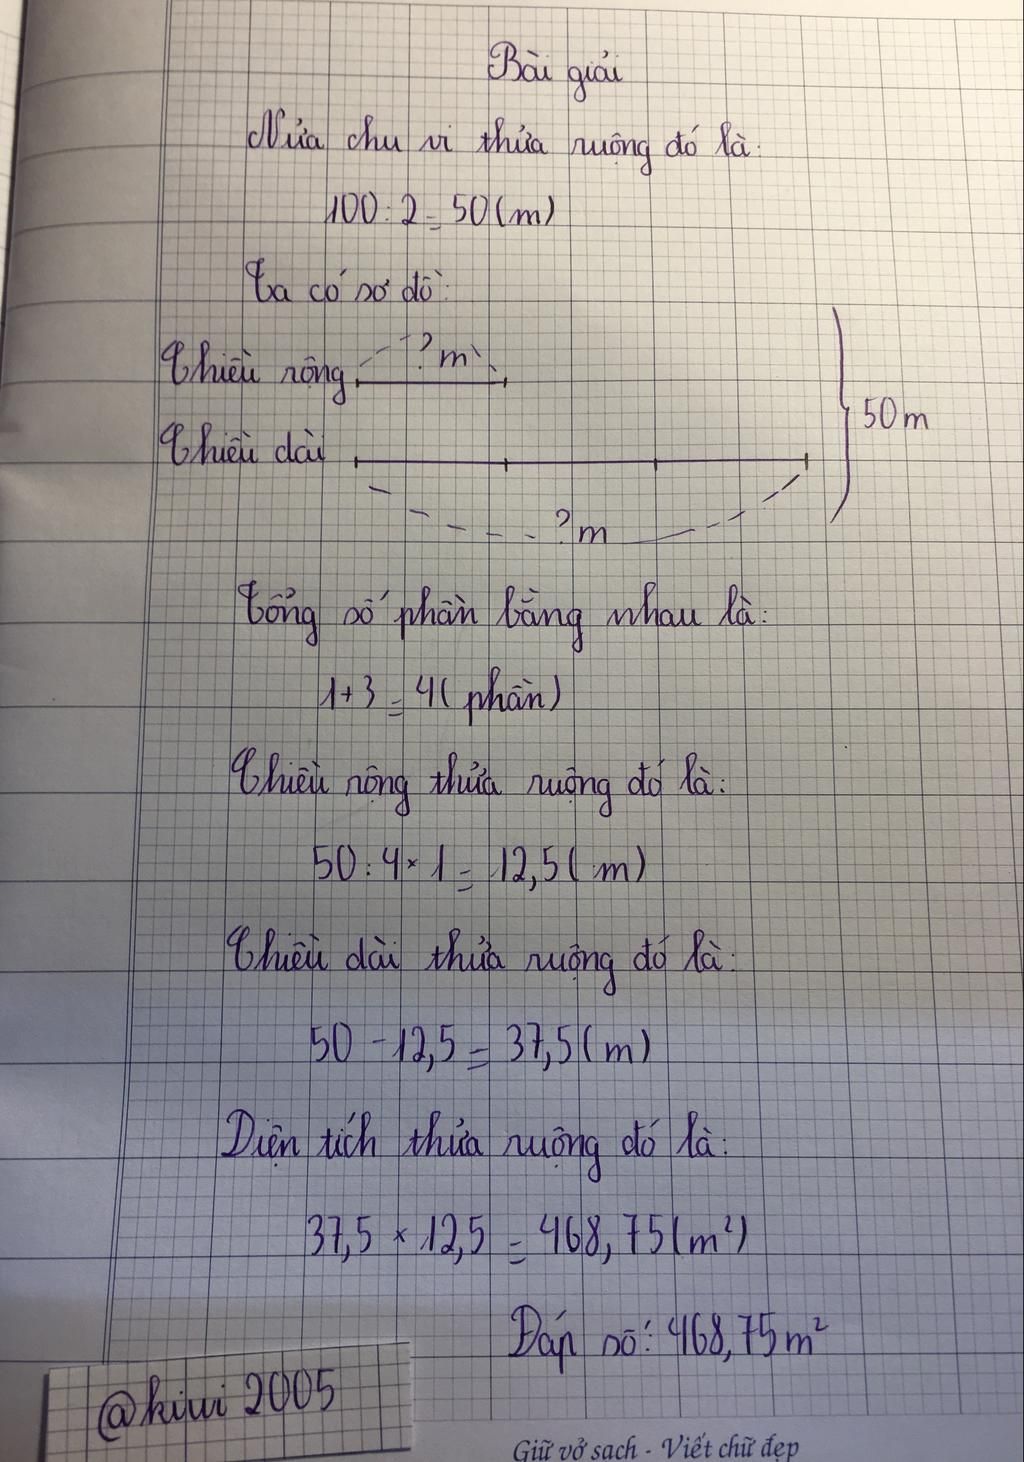 Bài giải
Nửa chu vi thửa ruộng đó là:
100 : 2 = 50 (m)
Ta có sơ đồ:
Chiều rộng ? m
50 m
Chiều dài
? m
Tổng số phần bằng nhau là:
1 + 3 = 4 ( phần)
Chiều rộng thửa ruộng đó là:
50 : 4 × 1 = 12,5 ( m)
Chiều dài thửa ruộng đó là:
50 - 12,5 = 37,5 ( m)
Diện tích thửa ruộng đó là:
37,5 × 12,5 = 468,75 (m²)
Đáp số: 468,75 m²
@kiwi 2005
Giữ vở sạch - Viết chữ đẹp